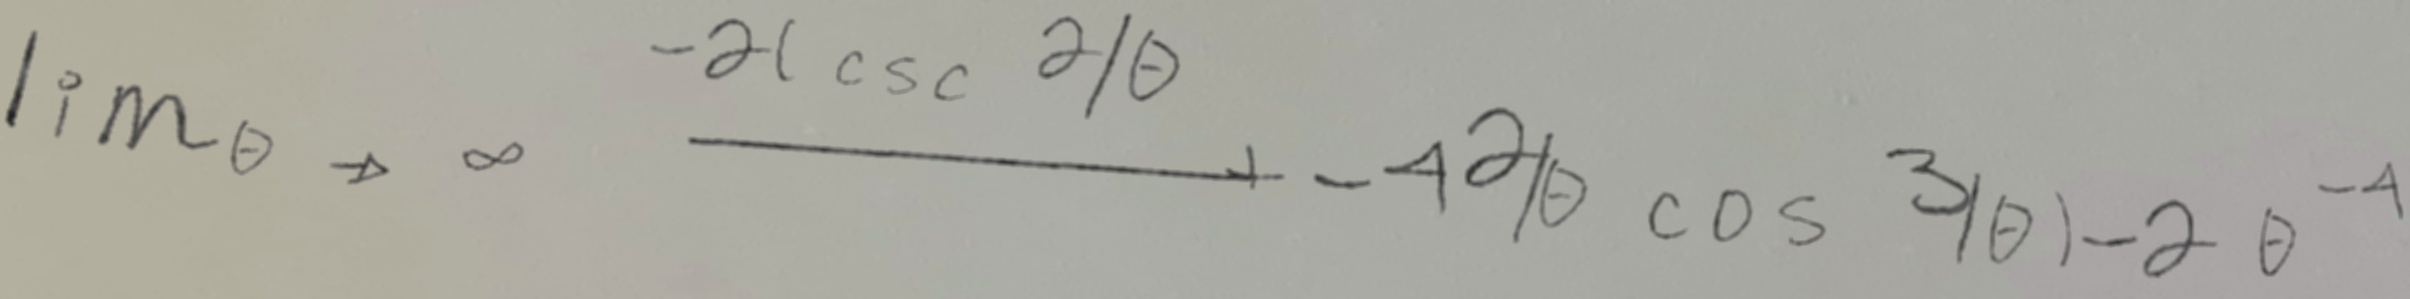 lim θ → ∞ -2(csc 2/θ + -4 2/θ cos 3/θ) -2 θ -4